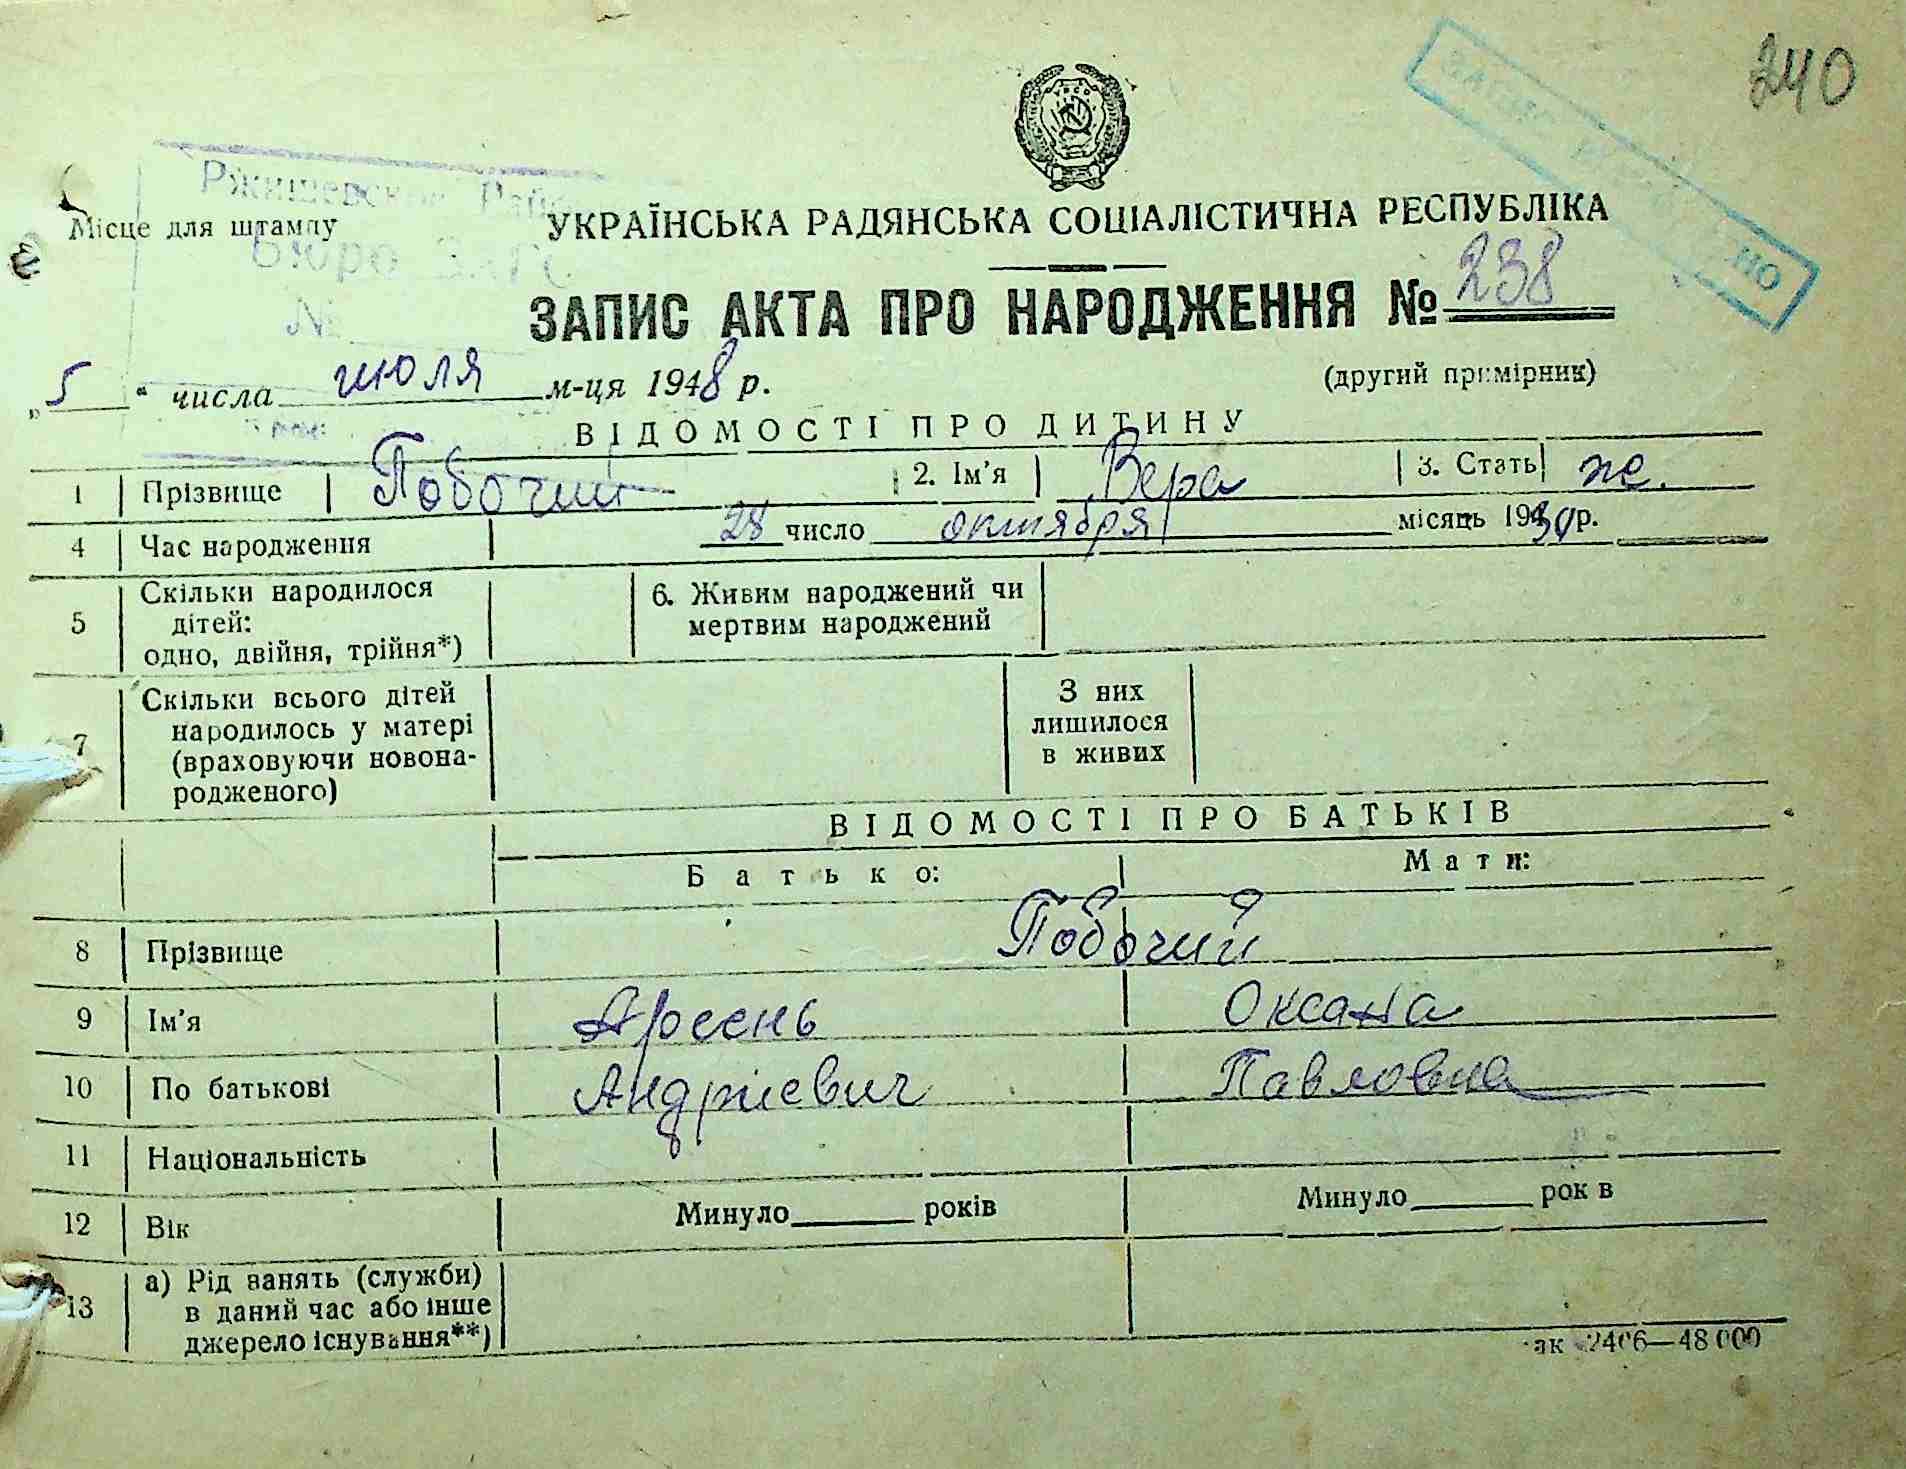 240
Ржищевский Рай
Бюро ЗАГС
№
Місце для штампу
УКРАЇНСЬКА РАДЯНСЬКА СОЦІАЛІСТИЧНА РЕСПУБЛІКА
ЗАПИС АКТА ПРО НАРОДЖЕННЯ № 238
(другий примірник)
„5“ числа июля м-ця 1948 р.
ВІДОМОСТІ ПРО ДИТИНУ
1 Прізвище Побочий 2. Ім'я Вера 3. Стать ж.
4 Час народження 28 число октября місяць 1930 р.
5 Скільки народилося дітей: одно, двійня, трійня*) 6. Живим народжений чи мертвим народжений
7 Скільки всього дітей народилось у матері (враховуючи новонародженого) З них лишилося в живих
ВІДОМОСТІ ПРО БАТЬКІВ
Батько: Мати:
8 Прізвище Побочий
9 Ім'я Арсень Оксана
10 По батькові Андриевич Павловна
11 Національність
12 Вік Минуло років Минуло рок в
13 а) Рід занять (служби) в даний час або інше джерело існування**)
ак 2406—48 000